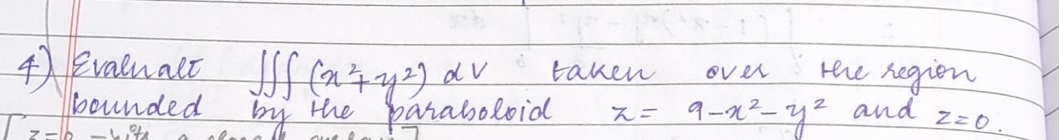 4) Evaluate ∭ (x²+y²) dV taken over the region
bounded by the paraboloid z = 9-x²-y² and z=0.